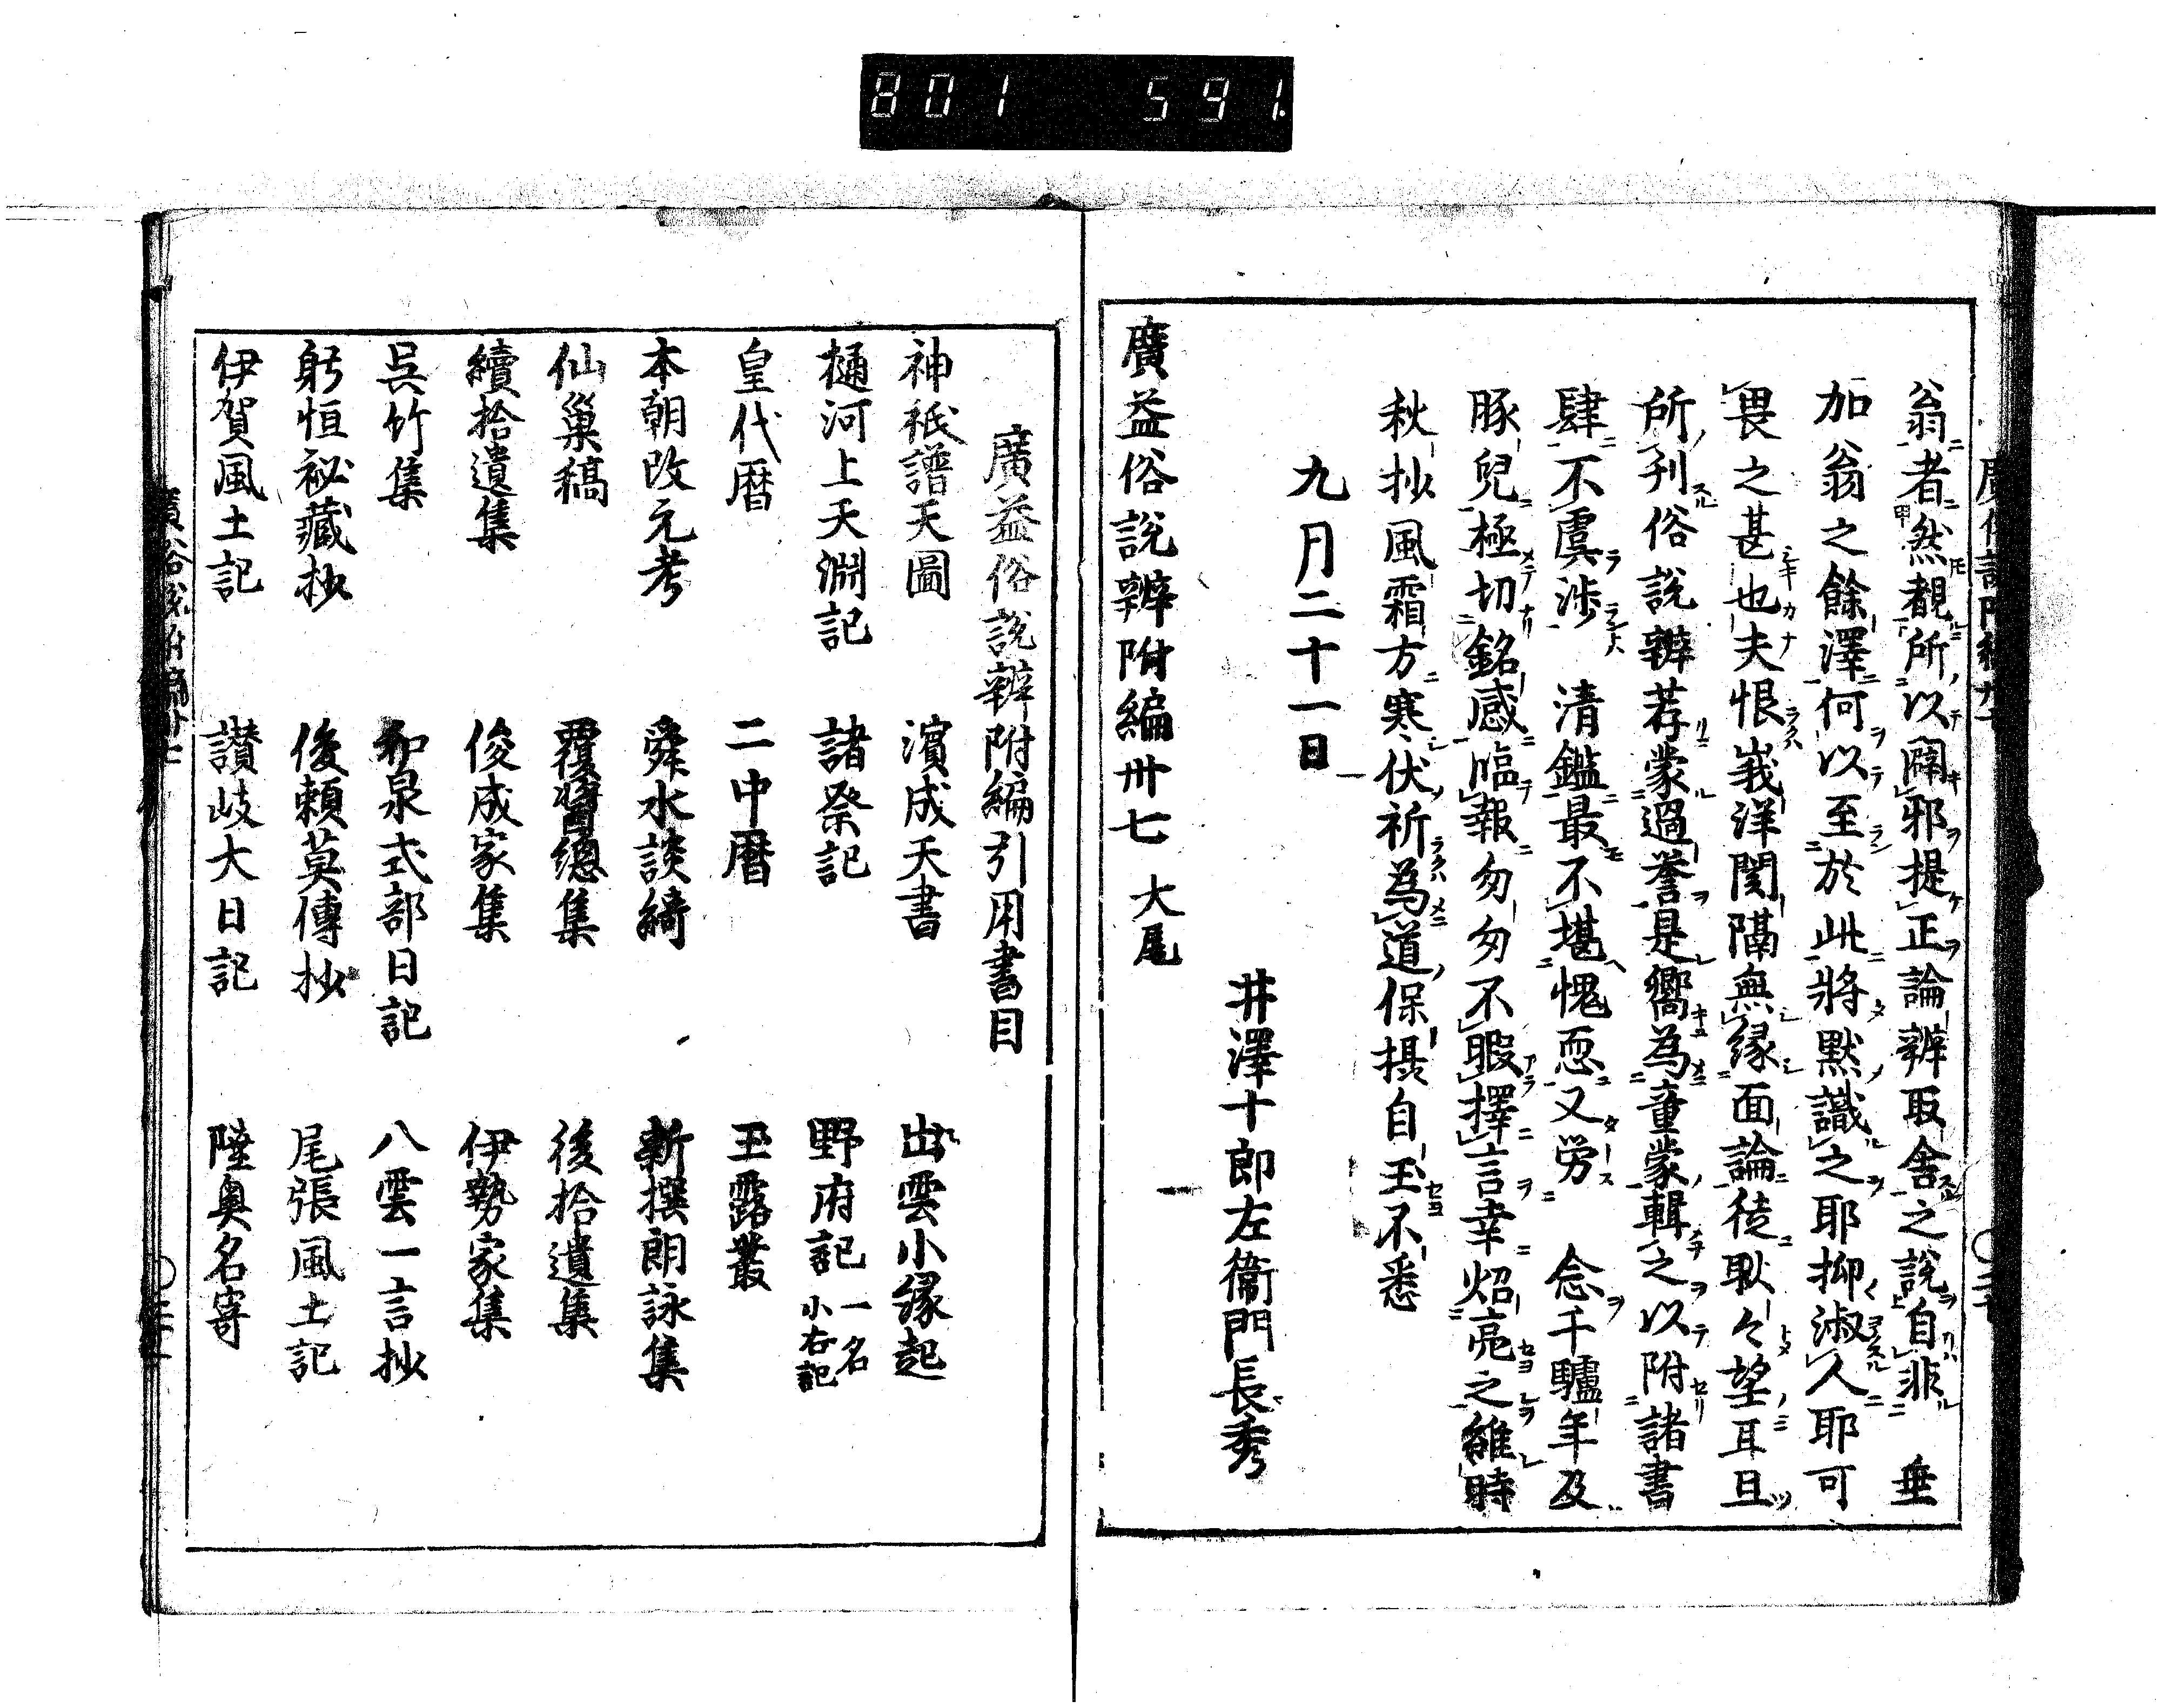 801 591
翁者然覩所以闢邪提正論辨取舍之說自非 垂
加翁之餘澤何以至於此將默識之耶抑淑人耶可
畏之甚也夫恨峩洋関隔無縁面論徒耿々望耳且
所刊俗説辨荐蒙過誉是嚮為童蒙輯之以附諸書
肆不虞渉 清鑑最不堪愧恧又労 念千驢年及
豚兒極切銘感臨報匆匆不暇擇言幸炤亮之維時
秋抄風霜方寒伏祈為道保摂自玉不悉
九月二十一日
井澤十郎左衛門長秀
廣益俗説辨附編卅七 大尾
廣益俗説辨附編引用書目
神祇譜天圖 濱成天書 出雲小縁起
樋河上天淵記 諸祭記 野府記 一名小右記
皇代暦 二中暦 玉露叢
本朝改元考 舜水談綺 新撰朗詠集
仙巢稿 覆醤總集 後拾遺集
續拾遺集 俊成家集 伊勢家集
呉竹集 和泉式部日記 八雲一言抄
躬恒祕藏抄 俊頼莫傳抄 尾張風土記
伊賀風土記 讃岐大日記 陸奥名寄